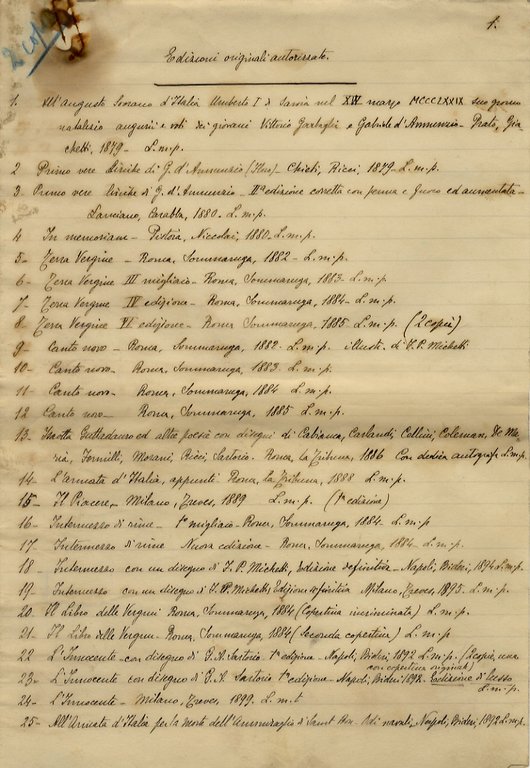 2 copie
1.
Edizioni originali autorizzate.
1. All'Augusto Sovrano d'Italia Umberto I di Savoia nel XIV marzo MCCCLXXIX suo giorno
natalizio augurii e voti dei giovani Vittorio Garbaglia e Gabriele d'Annunzio - Prato, Gia
chetti, 1879 - L.m.p.
2 Primo vere Liriche di G. d'Annunzio (Floro) - Chieti, Ricci, 1879 - L.m.p.
3 - Primo vere liriche di G. d'Annunzio - IIa edizione corretta con penna e fuoco ed aumentata -
Lanciano, Carabba, 1880 - L.m.p.
4 In memoriam - Pistoia, Niccolai, 1880 - L.m.p.
5 - Terra Vergine - Roma, Sommaruga, 1882 - L.m.p.
6 - Terra Vergine III migliaio - Roma, Sommaruga, 1883 - L.m.p.
7 - Terra Vergine IV edizione - Roma, Sommaruga, 1884 - L.m.p.
8 Terra Vergine VI edizione - Roma Sommaruga, 1885 L.m.p. (2 copie)
9 - Canto novo - Roma, Sommaruga, 1882 - L.m.p. illustr. di F.P. Michetti
10 - Canto novo - Roma, Sommaruga, 1883 L.m.p.
11 - Canto novo - Roma, Sommaruga, 1884 L.m.p.
12 Canto novo - Roma, Sommaruga, 1885 L.m.p.
13. Isotta Guttadauro ed altre poesie con disegni di Cabianca, Carlandi, Cellini, Coleman, De Ma
ria, Formilli, Morani, Ricci, Sartorio - Roma, La Tribuna, 1886 Con dedica autografa L.m.p.
14. L'armata d'Italia, appunti Roma, La Tribuna, 1888 L.m.p.
15 - Il Piacere - Milano, Treves, 1889 L.m.p. (1a edizione)
16 - Intermezzo di rime - 1° migliaio - Roma, Sommaruga, 1884 - L.m.p.
17. Intermezzo di rime Nuova edizione - Roma, Sommaruga, 1884 - L.m.p.
18 - Intermezzo con un disegno di F.P. Michetti, Edizione definitiva - Napoli, Bideri, 1894 L.m.p.
19 - Intermezzo con un disegno di F.P. Michetti, Edizione definitiva Milano, Treves, 1895. L.m.p.
20. Il Libro delle Vergini Roma, Sommaruga, 1884 (Copertina incriminata) L.m.p.
21 - Il Libro delle Vergini - Roma, Sommaruga, 1884 (Seconda copertina) L.m.p
22 L'Innocente con disegno di G.A. Sartorio 1a edizione - Napoli, Bideri 1892 L.m.p. (2 copie, una
con copertina originale)
23 - L'Innocente con disegno di G.A. Sartorio 1a edizione - Napoli, Bideri 1892. Edizione di lusso
L.m.p.
24 - L'Innocente - Milano, Treves, 1899. L.m.t
25 - All'Armata d'Italia per la morte dell'Ammiraglio di Saint Bon - Odi navali, Napoli, Bideri, 1892 L.m.p.